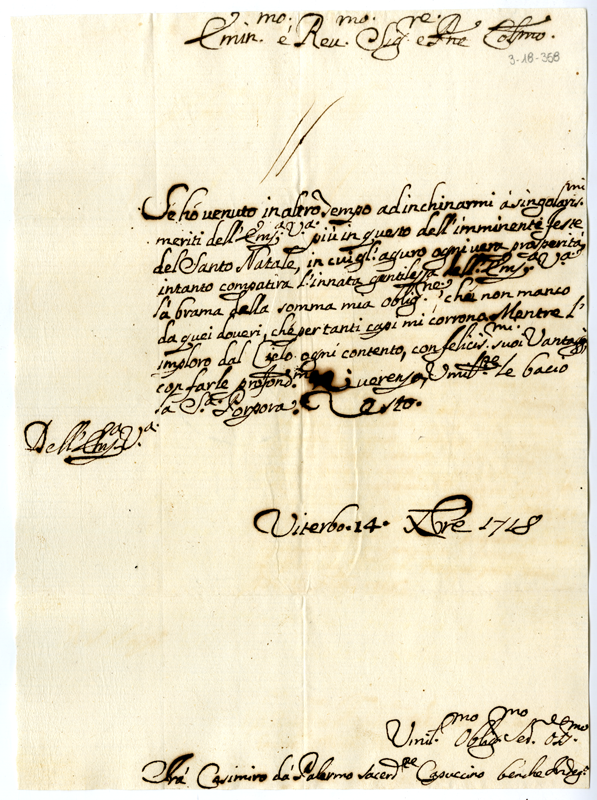 Emin.mo é Reu.mo Sig.re e Pne Colmo.
3-18-358
Se hó venuto in altro Tempo ad inchinarmi á singolaris.mi
meriti dell'Em.a V.a più in questo dell'imminenti feste
del Santo Natale, in cui gl: aguro ogni vera prosperitá,
intanto compatira l'innata gentilessa dell'Em.a V.a
la brama della somma mia oblig.ne che non manco
da quei doveri, che per tanti capi mi corrono, Mentre l'
imploro dal Cielo ogni contento, con felicis.mi suoi Vantaggi
con farle profond.ma Riverensa, Umil.te le bacio
la S.a Porpora. Resto.
Dell'Em.a V.a
Viterbo. 14. Xbre 1718
Umil.mo Oblig.mo Ser.
Frá Casimiro dá Palermo Sacerd.te Capucino benche